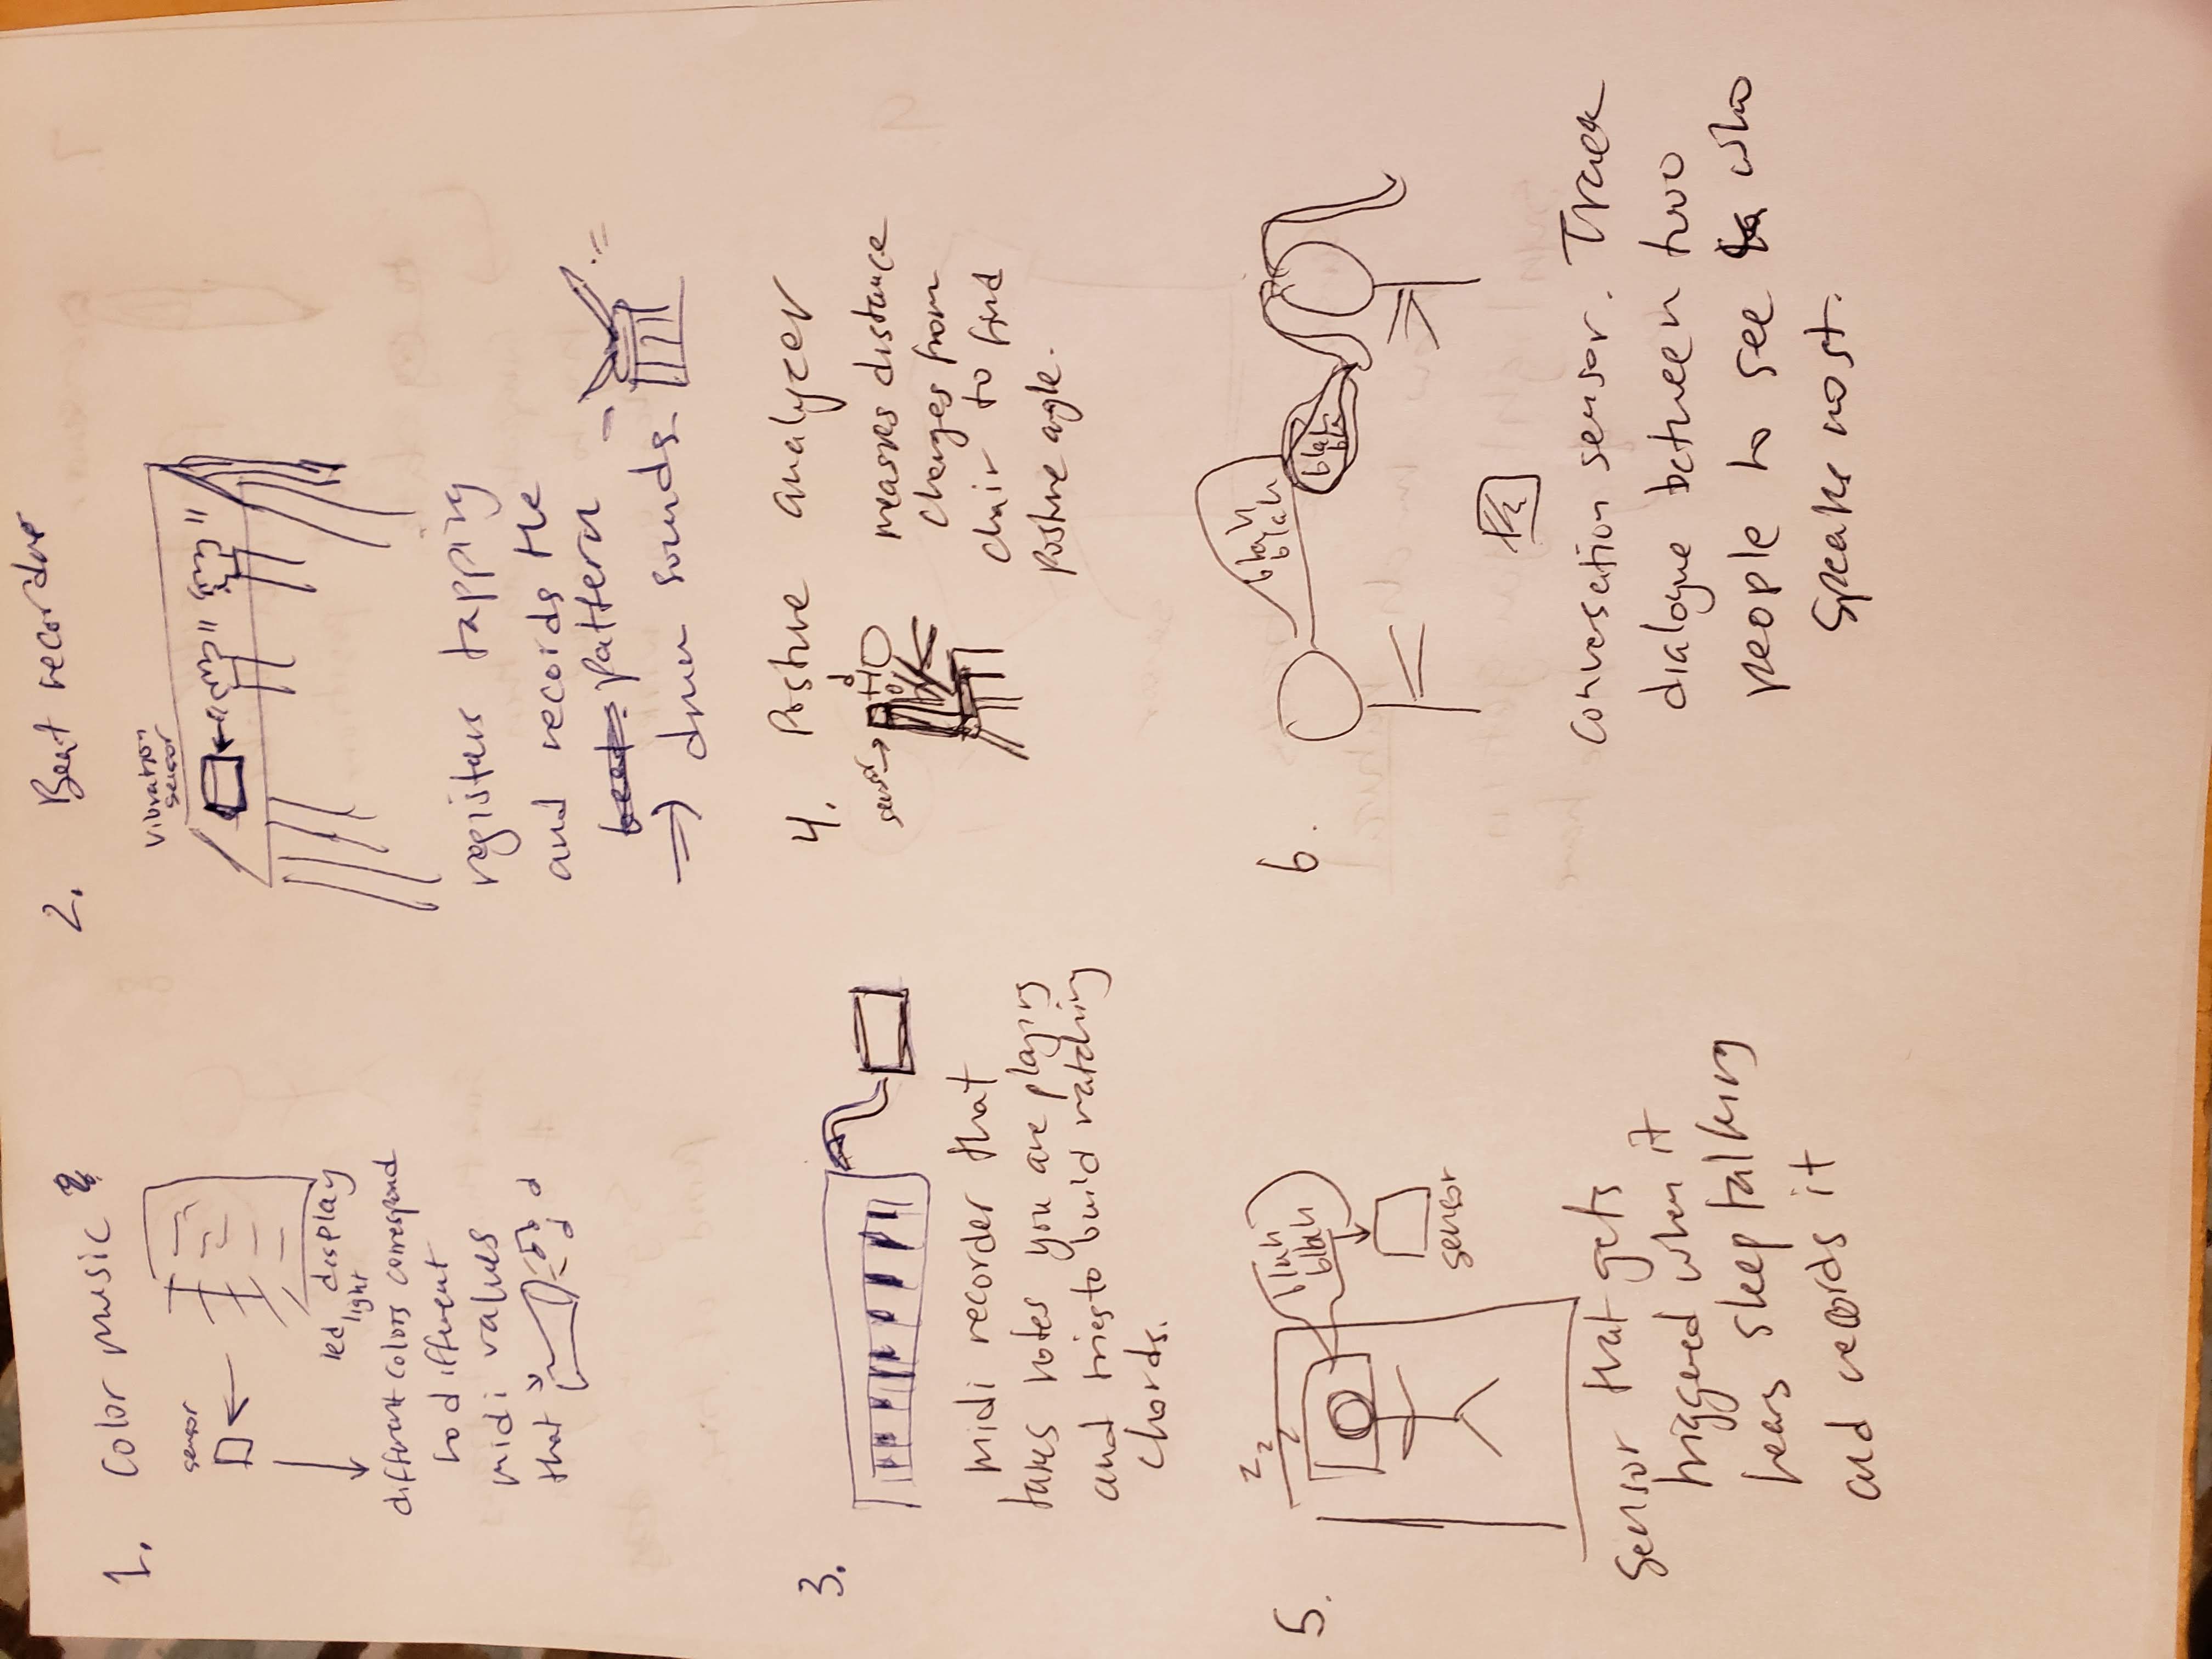 1. Color music
sensor
led display
light
different colors correspond
to different
midi values
that
2. Beat recorder
vibration
sensor
registers tapping
and records the
beat. pattern
⇒ drum sounds
3.
midi recorder that
takes notes you are playing
and tries to build matching
chords.
4. Posture analyzer
sensor →
d
measures distance
changes from
chair to find
posture angle.
5.
z z z
blah
blah
sensor
Sensor that gets
triggered when it
hears sleep talking
and records it
6.
blah
blah
blah
bla
conversation sensor. Track
dialogue between two
people to see who
speaks most.